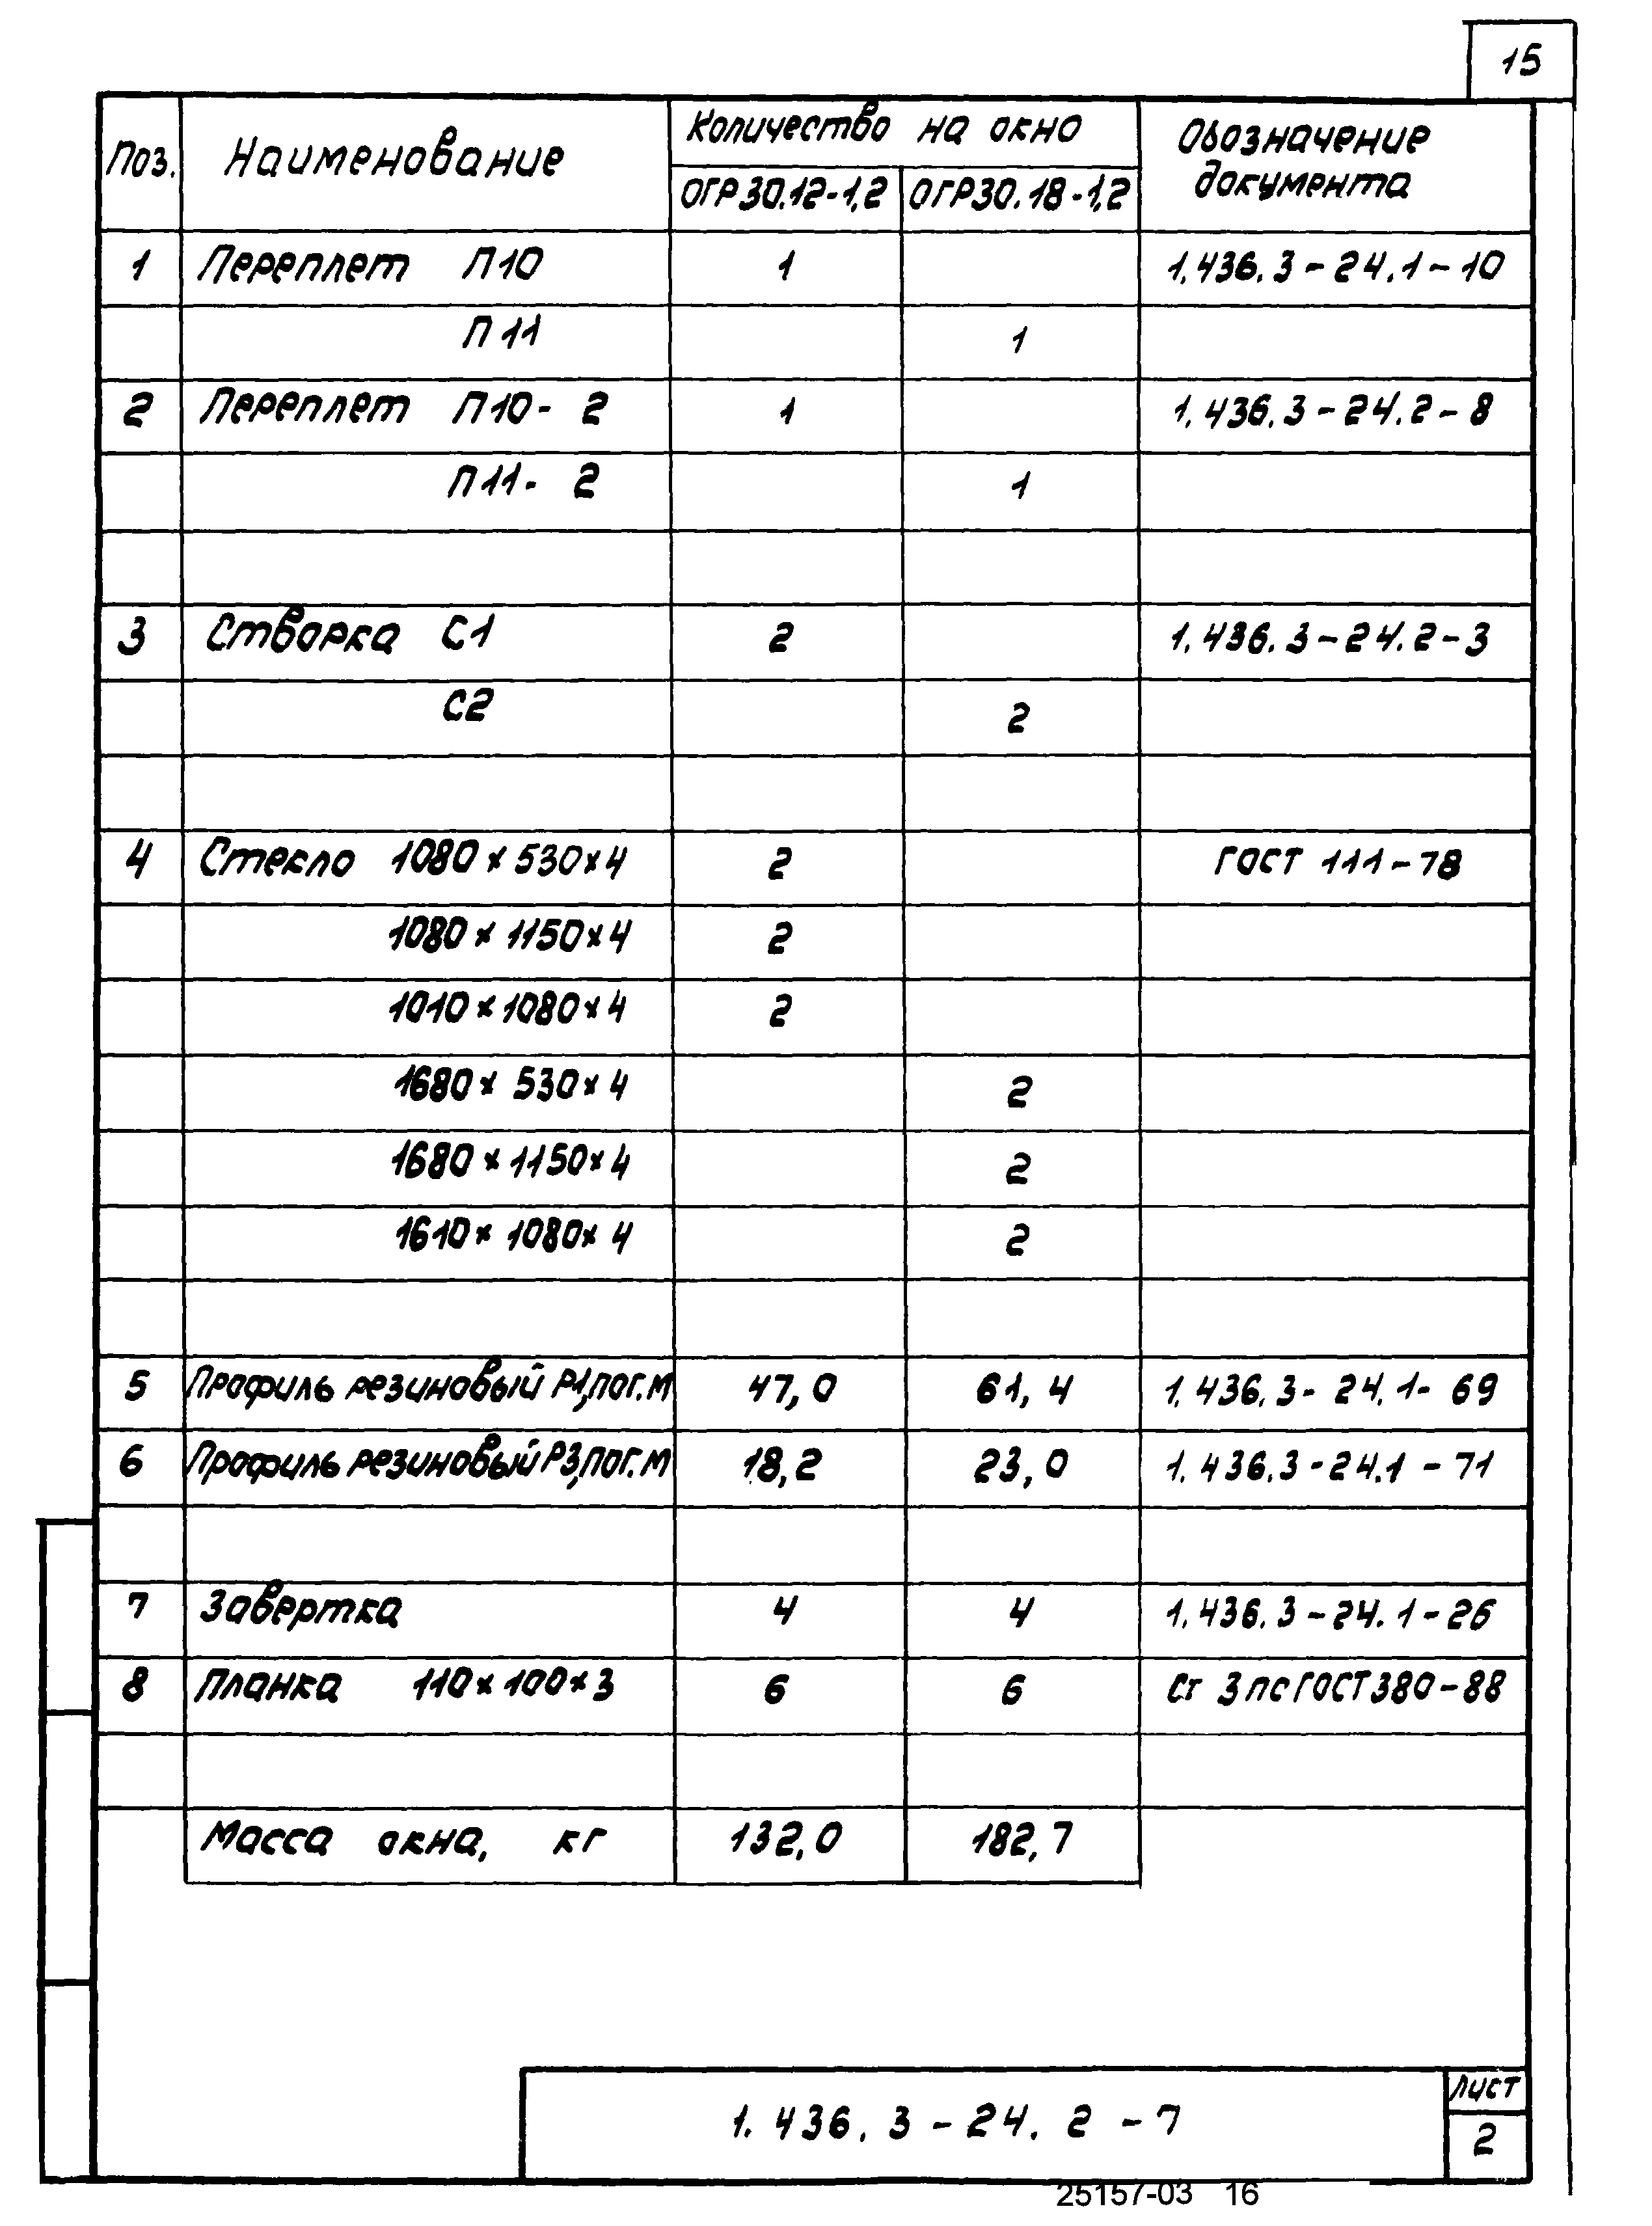 15
Поз. Наименование Количество на окно Обозначение документа
ОГР30.12-1,2 ОГР30.18-1,2
1 Переплет П10 1 1.436.3-24.1-10
П11 1
2 Переплет П10-2 1 1.436.3-24.2-8
П11-2 1
3 Створка С1 2 1.436.3-24.2-3
С2 2
4 Стекло 1080х530х4 2 ГОСТ 111-78
1080х1150х4 2
1010х1080х4 2
1680х530х4 2
1680х1150х4 2
1610х1080х4 2
5 Профиль резиновый Р1,пог.м 47,0 61,4 1.436.3-24.1-69
6 Профиль резиновый Р3,пог.м 18,2 23,0 1.436.3-24.1-71
7 Завертка 4 4 1.436.3-24.1-26
8 Планка 110х100х3 6 6 Ст 3пс ГОСТ 380-88
Масса окна, кг 132,0 182,7
1.436.3-24.2-7
лист
2
25157-03 16